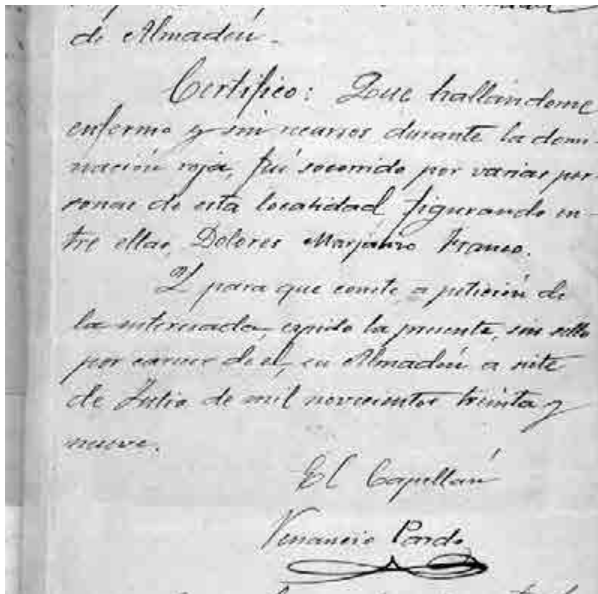 de Almadén.
Certifico: Que hallándome
enfermo y sin recursos durante la domi-
nación roja, fuí socorrido por varias per-
sonas de esta localidad figurando en-
tre ellas, Dolores Manzano Franco.
Y para que conste, a petición de
la interesada, expido la presente, sin sello
por carecer de el, en Almadén a siete
de Julio de mil novecientos treinta y
nueve.
El Capellán
Venancio Pardo